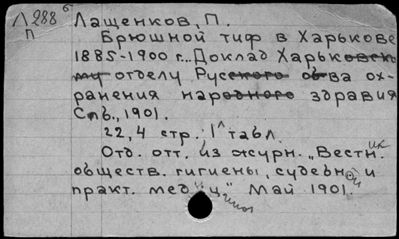 Л288б Лащенков, П.
П
Брюшной тиф в Харькове
1885-1900 г... Доклад Харьковско
му отделу Русского об-ва ох-
ранения народного здравия
Спб., 1901.
22, 4 стр. 1 л табл.
Отд. отт. из журн. „Вестник
обществ. гигиены, судебной и
практ. мед-ицины". Май 1901.